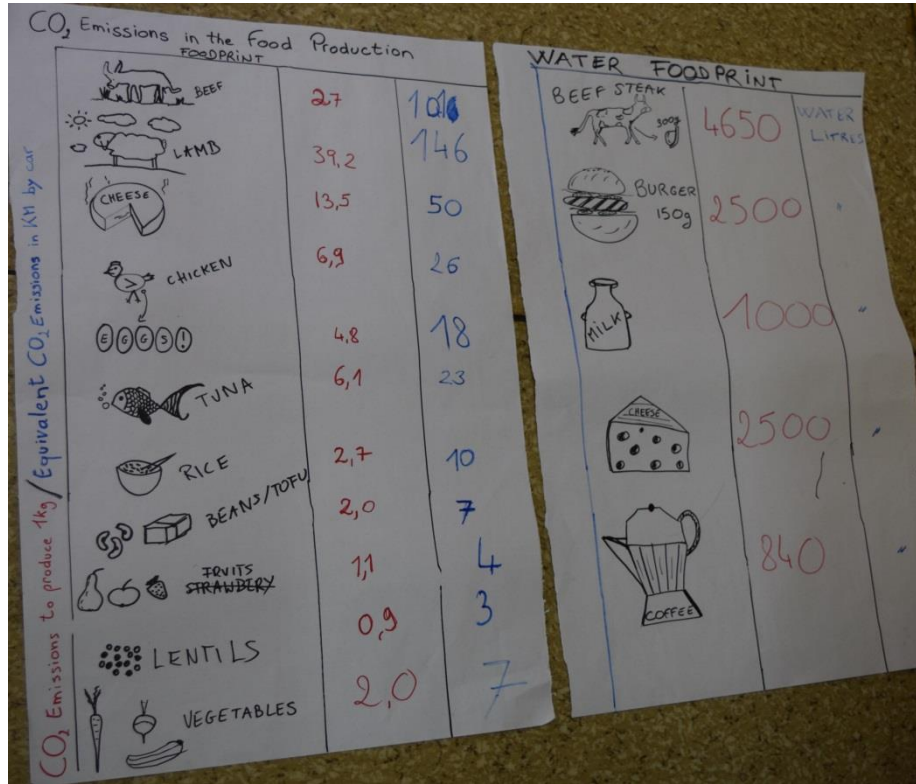 CO₂ Emissions in the Food Production
FOODPRINT
CO₂ Emissions to produce 1kg / Equivalent CO₂ Emissions in KM by car
BEEF 27 101
LAMB 39,2 146
CHEESE 13,5 50
CHICKEN 6,9 26
EGGS! 4,8 18
TUNA 6,1 23
RICE 2,7 10
BEANS/TOFU 2,0 7
FRUITS 1,1 4
STRAWBERY
LENTILS 0,9 3
VEGETABLES 2,0 7
WATER FOODPRINT
BEEF STEAK 300g 4650 WATER LITRES
BURGER 150g 2500 "
MILK 1000 "
CHEESE 2500 "
COFFEE 840 "